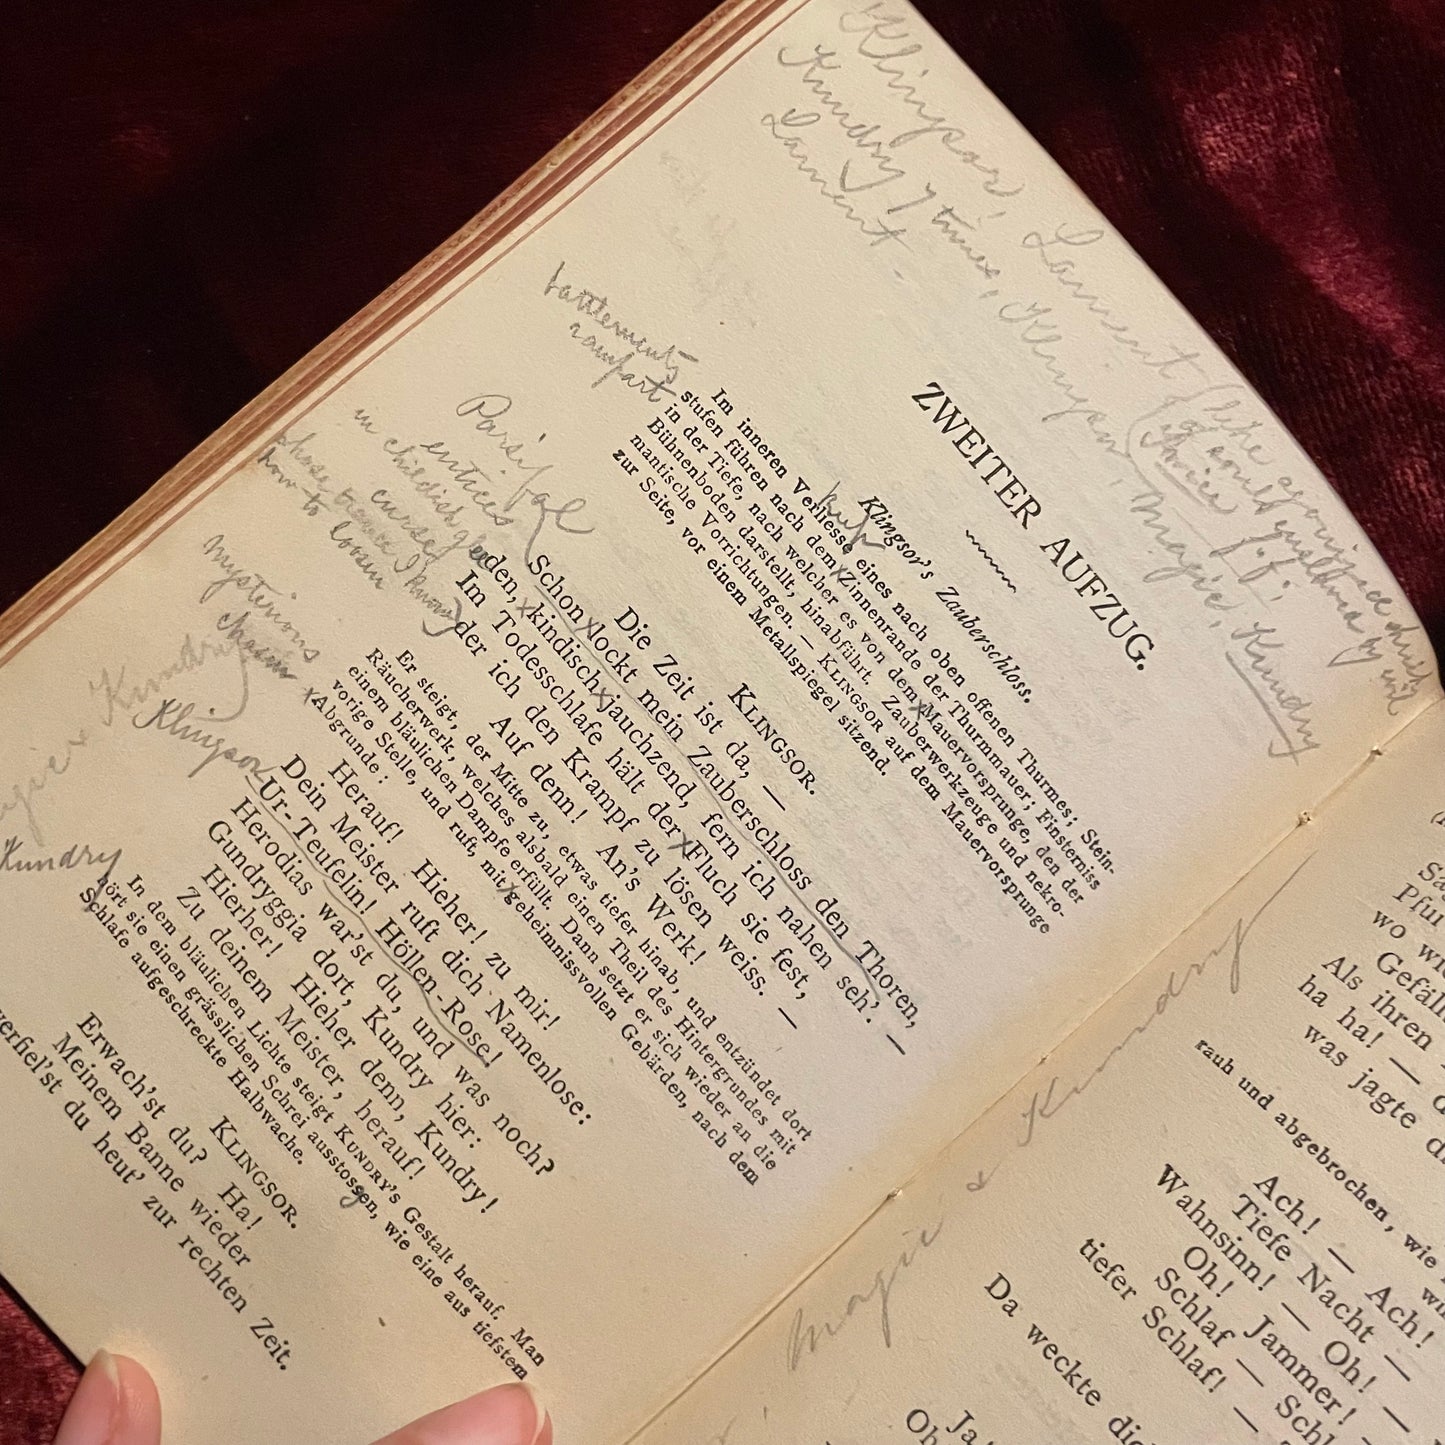 Klingsor, Lament (like agonized shriek
Kundry 7 times, Klingsor twice f.f.;
Lament. Magic, Kundry
of soul
by evil
ZWEITER AUFZUG.
Klingsor's Zauberschloss.
battlements
rampart
Im inneren Verliesse eines nach oben offenen Thurmes; Stein-
stufen führen nach dem Zinnenrande der Thurmmauer; Finsterniss
in der Tiefe, nach welcher es von dem Mauervorsprunge, den der
Bühnenboden darstellt, hinabführt. Zauberwerkzeuge und nekro-
mantische Vorrichtungen. — KLINGSOR auf dem Mauervorsprunge
zur Seite, vor einem Metallspiegel sitzend.
KLINGSOR.
Parsifal
entices
in childish glee
curse
whose trance I know
how to loosen
Die Zeit ist da, —
Schon lockt mein Zauberschloss den Thoren,
den, kindisch jauchzend, fern ich nahen seh'. —
Im Todesschlafe hält der Fluch sie fest,
der ich den Krampf zu lösen weiss. —
Auf denn! An's Werk!
mysterious
chasm
Er steigt, der Mitte zu, etwas tiefer hinab, und entzündet dort
Räucherwerk, welches alsbald einen Theil des Hintergrundes mit
einem bläulichen Dampfe erfüllt. Dann setzt er sich wieder an die
vorige Stelle, und ruft, mit geheimnissvollen Gebärden, nach dem
Abgrunde:
Kundry
Klingsor
Herauf! Hieher! zu mir!
Dein Meister ruft dich Namenlose:
Ur-Teufelin! Höllen-Rose!
Herodias war'st du, und was noch?
Gundryggia dort, Kundry hier:
Hierher! Hieher denn, Kundry!
Zu deinem Meister, herauf!
Kundry
In dem bläulichen Lichte steigt KUNDRY'S Gestalt herauf. Man
hört sie einen grässlichen Schrei ausstossen, wie eine aus tiefstem
Schlafe aufgeschreckte Halbwache.
KLINGSOR.
Erwach'st du? Ha!
Meinem Banne wieder
verfiel'st du heut' zur rechten Zeit.
magic x Kundry
Pfui
wo
Gefäll
Als ihren
ha ha! —
was jagte
rauh und abgebrochen, wie
Ach! — Ach!
Tiefe Nacht —
Wahnsinn! — Oh!
Oh! Jammer!
Schlaf — Schl
tiefer Schlaf! —
Da weckte
Ja!